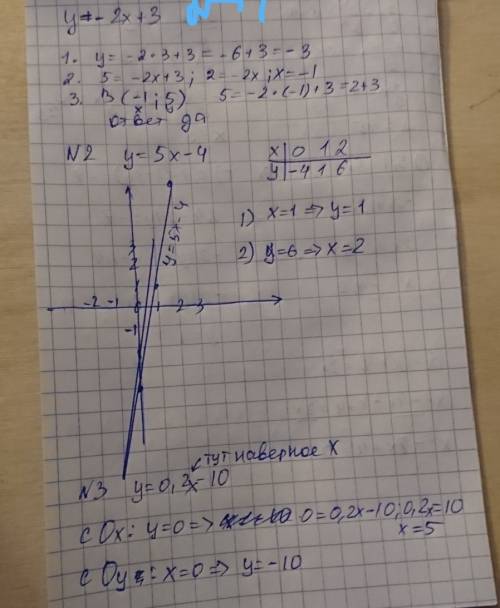 y=-2x+3
1. y=-2·3+3=-6+3=-3
2. 5=-2x+3; 2=-2x; x=-1
3. B(-1;5) 5=-2·(-1)+3=2+3
x y
ответ да
N2 y=5x-4
x 0 1 2
y -4 1 6
y=5x-4
1) x=1⇒y=1
2) y=6⇒x=2
2
-2 -1 1 2 3
-1
тут наверное x
N3 y=0,2x-10
с Ox: y=0⇒ 0=0,2x-10; 0,2x=10
x=5
с Oy: x=0⇒y=-10